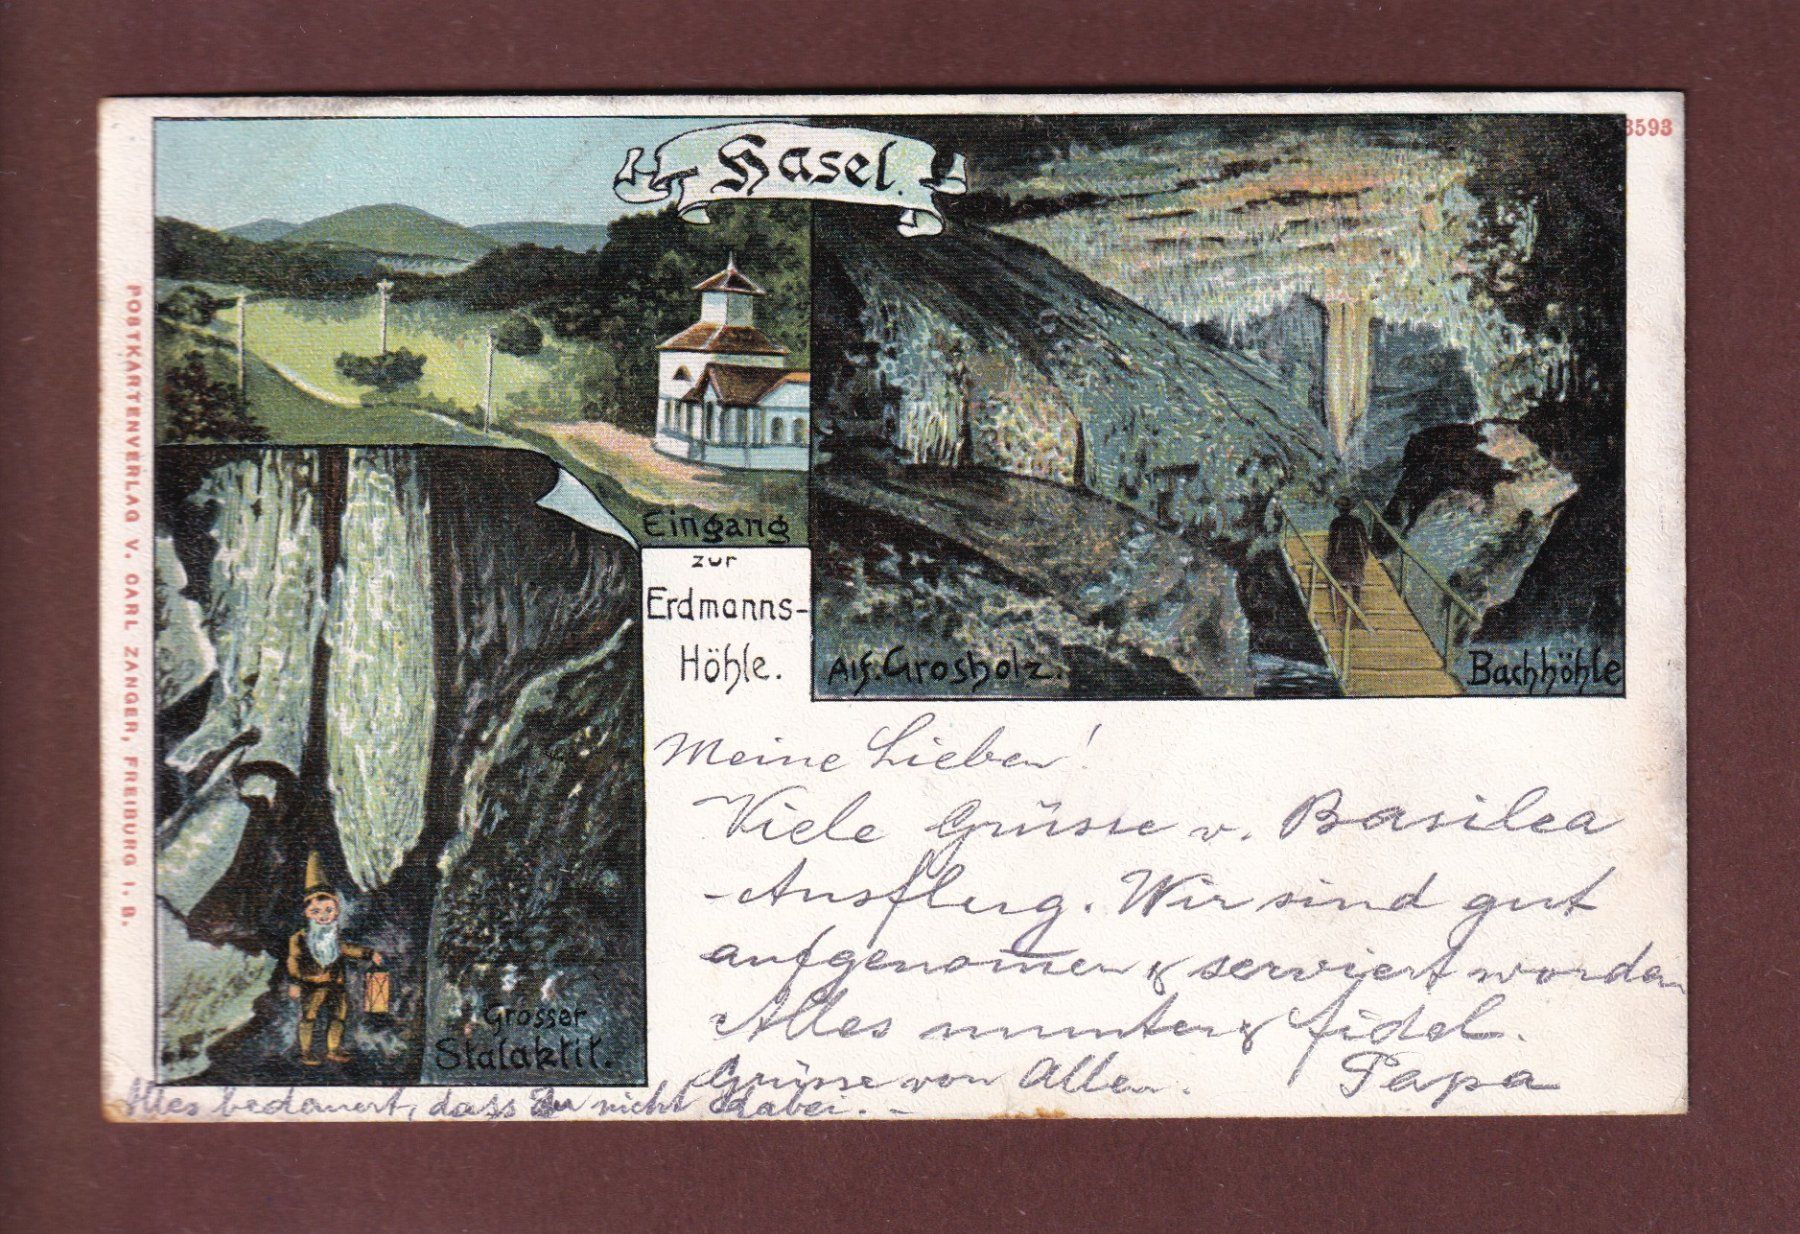 Hasel.
3593
Eingang
zur
Erdmanns-
Höhle.
Alf. Grosholz.
Bachhöhle
Grosser
Stalaktit.
POSTKARTENVERLAG V. CARL ZANGER, FREIBURG I. B.
Meine Lieben!
Viele Grüsse v. Basilea
Ausflug. Wir sind gut
aufgenom̅en & serviert worden
Alles munter & fidel.
Grüsse von Allen. Papa
Alles bedauert, dass Du nicht dabei. –